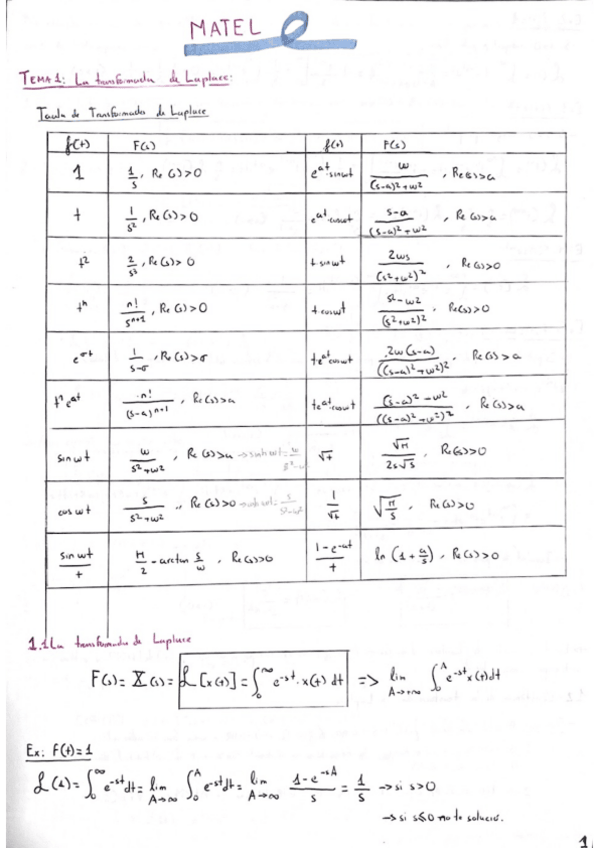 MATEL
TEMA 1: La transformada de Laplace:
Taula de Transformades de Laplace
f(t) F(s) f(t) F(s)
1 1/s, Re(s)>0 e^at·sinωt ω/((s-a)²+ω²), Re(s)>a
t 1/s², Re(s)>0 e^at·cosωt (s-a)/((s-a)²+ω²), Re(s)>a
t² 2/s³, Re(s)>0 t·sinωt 2ωs/(s²+ω²)², Re(s)>0
tⁿ n!/s^(n+1), Re(s)>0 t·cosωt (s²-ω²)/(s²+ω²)², Re(s)>0
e^σt 1/(s-σ), Re(s)>σ te^at·cosωt 2ω(s-a)/((s-a)²+ω²)², Re(s)>a
tⁿe^at n!/(s-a)^(n+1), Re(s)>a te^at·cosωt ((s-a)²-ω²)/((s-a)²+ω²)², Re(s)>a
sin ωt ω/(s²+ω²), Re(s)>a →sinh ωt = ω/(s²-ω²) √t √π/(2s√s), Re(s)>0
cos ωt s/(s²+ω²), Re(s)>0 →cosh ωt = s/(s²-ω²) 1/√t √(π/s), Re(s)>0
sin ωt/t π/2 - arctan s/ω, Re(s)>0 (1-e^-at)/t ln(1+a/s), Re(s)>0
1.1 La transformada de Laplace
F(s) = X(s) = ℒ[x(t)] = ∫₀^∞ e^-st·x(t) dt => lim A→+∞ ∫₀^A e^-st x(t) dt
Ex: F(t)=1
ℒ(1) = ∫₀^∞ e^-st dt = lim A→∞ ∫₀^A e^-st dt = lim A→∞ (1-e^-sA)/s = 1/s → si s>0
→ si s≤0 no te solució.
1